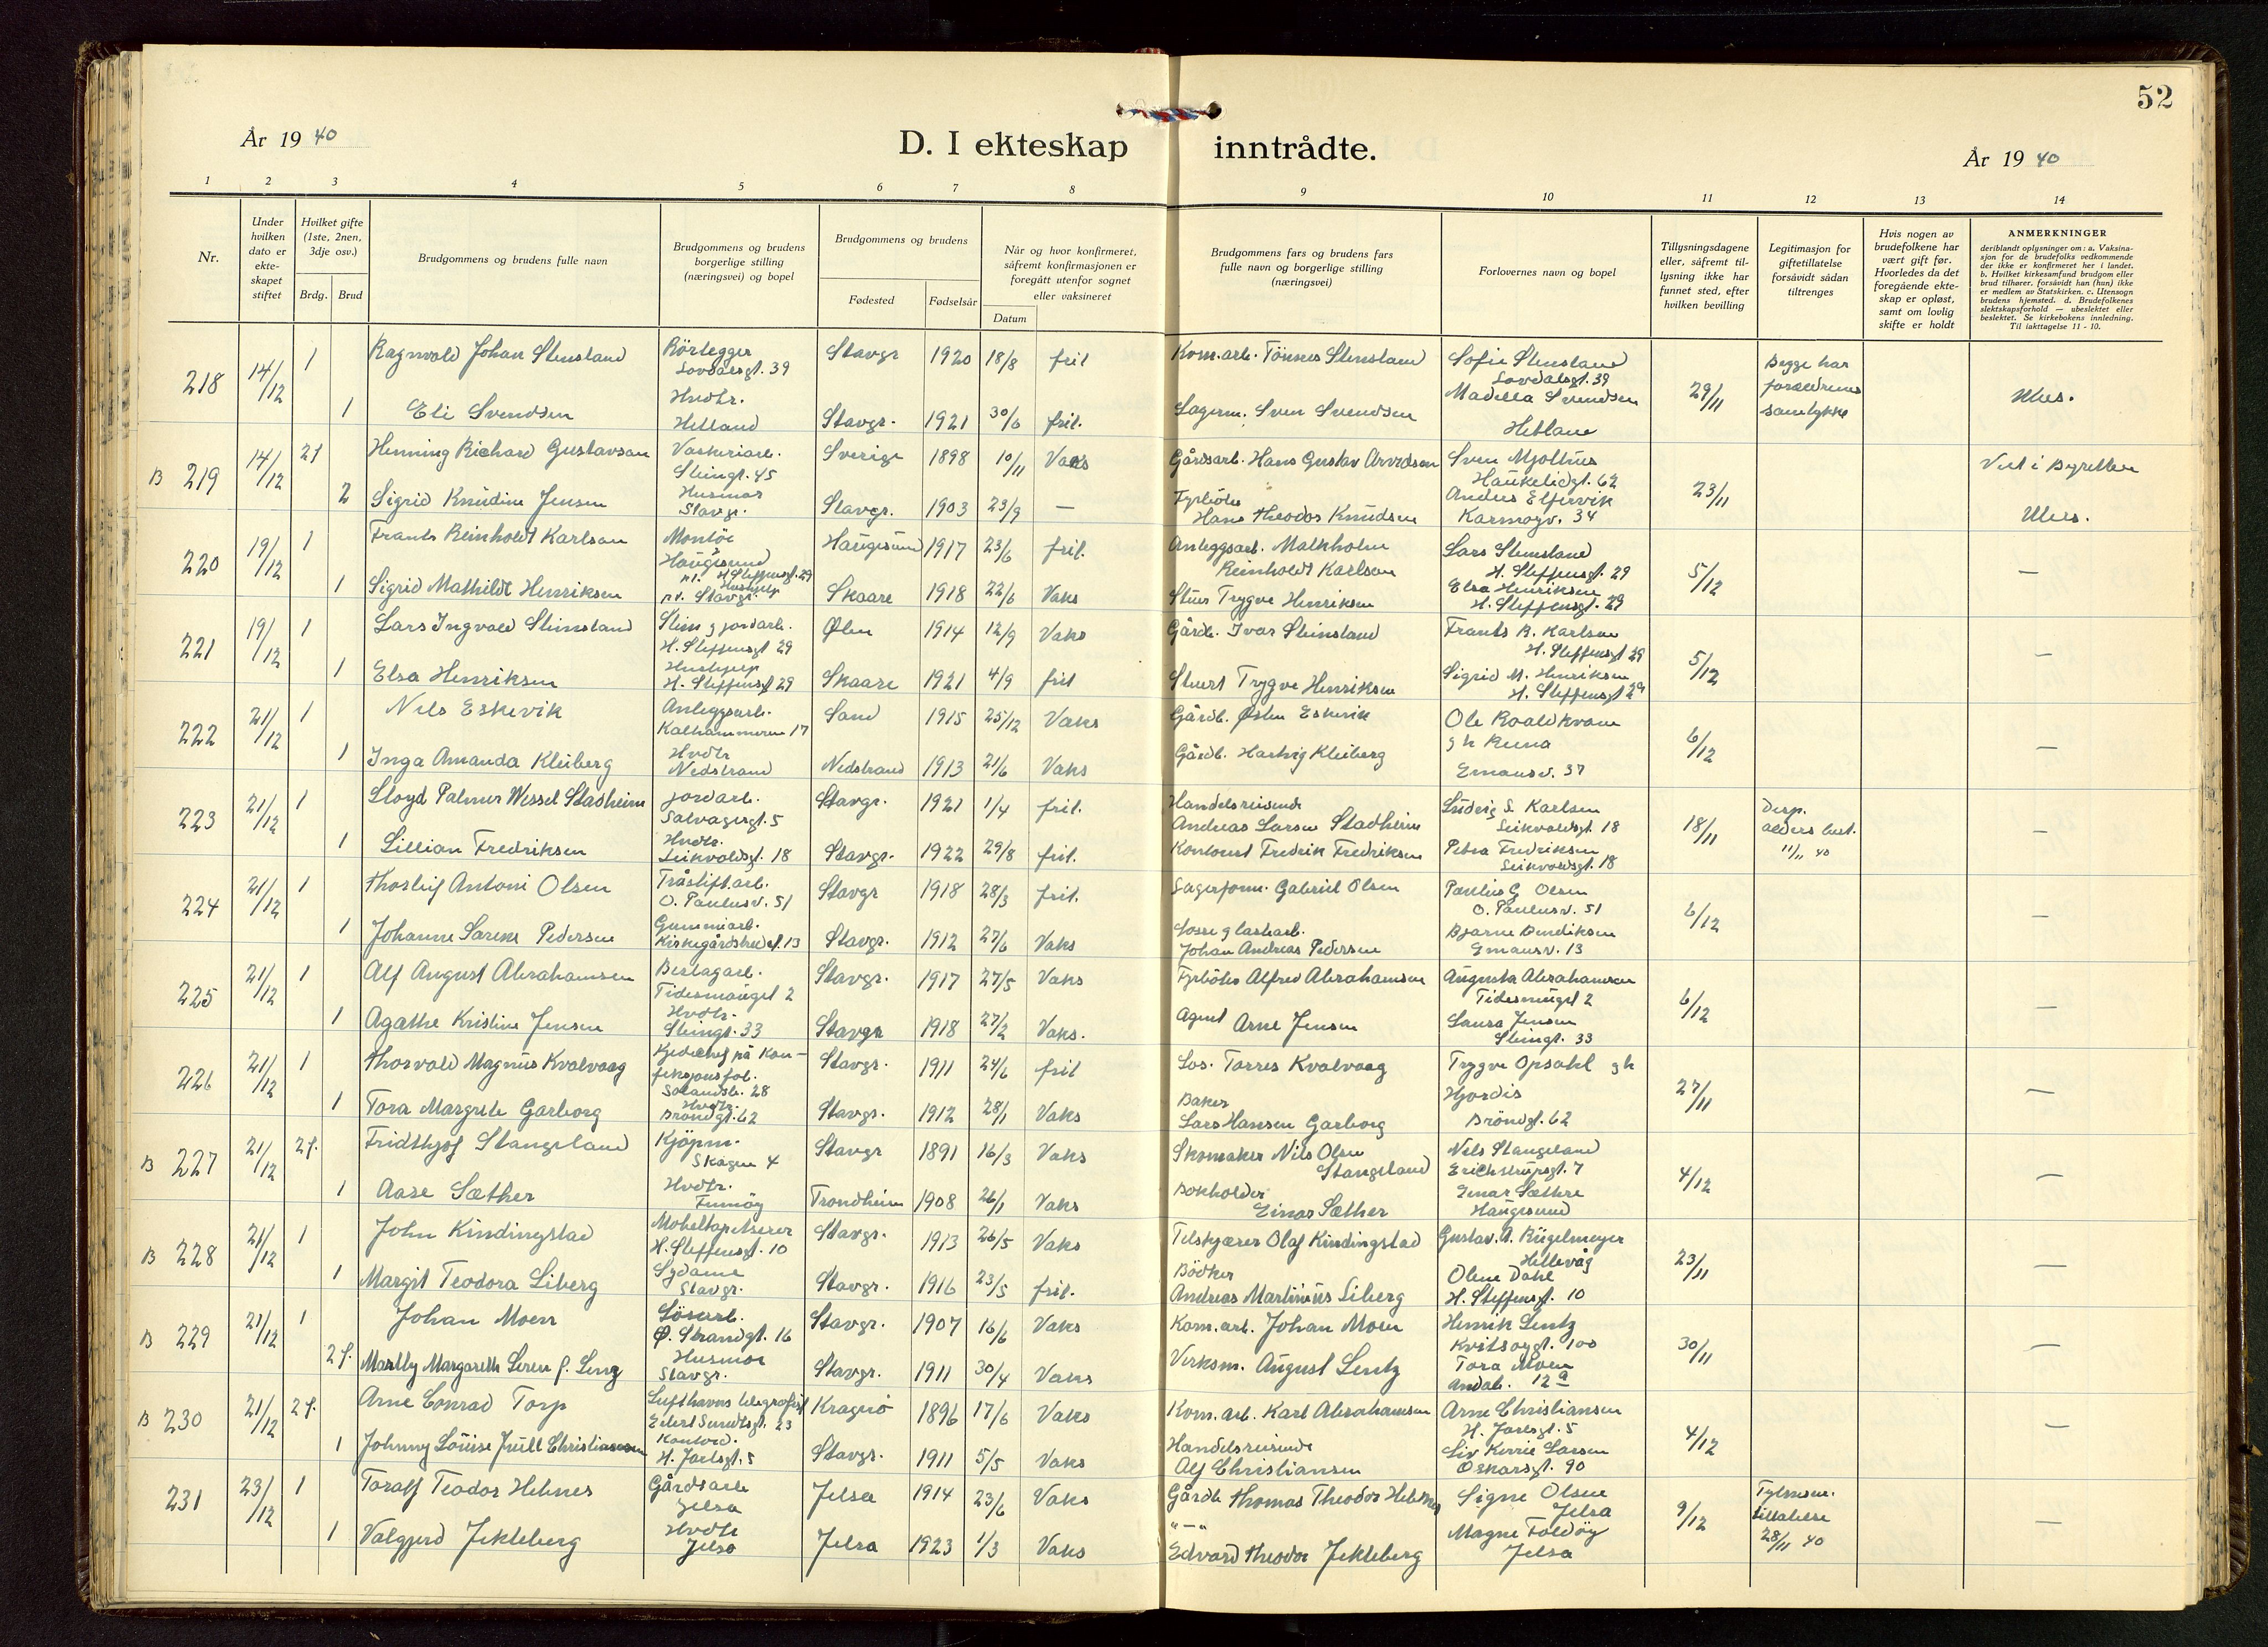 52
År 19 40
D. I ekteskap inntrådte.
År 19 40
1 2 3 4 5 6 7 8 9 10 11 12 13 14
Nr.
Under hvilken dato er ekte-skapet stiftet
Hvilket gifte (1ste, 2nen, 3dje osv.)
Brdg. Brud
Brudgommens og brudens fulle navn
Brudgommens og brudens borgerlige stilling (næringsvei) og bopel
Brudgommens og brudens
Fødested Fødselsår
Når og hvor konfirmeret, såfremt konfirmasjonen er foregått utenfor sognet eller vaksineret
Datum
Brudgommens fars og brudens fars fulle navn og borgerlige stilling (næringsvei)
Forlovernes navn og bopel
Tillysningsdagene eller, såfremt til-lysning ikke har funnet sted, efter hvilken bevilling
Legitimasjon for giftetillatelse forsåvidt sådan tiltrenges
Hvis nogen av brudefolkene har vært gift før. Hvorledes da det foregående ekte-skap er opløst, samt om lovlig skifte er holdt
ANMERKNINGER
deriblandt oplysninger om: a. Vaksina-sjon for de brudefolks vedkommende der ikke er konfirmeret her i landet. b. Hvilket kirkesamfund brudgom eller brud tilhører, forsåvidt han (hun) ikke er medlem av Statskirken. c. Utensogn brudens hjemsted. d. Brudefolkenes slektskapsforhold — ubeslektet eller beslektet. Se kirkebokens innledning. Til iakttagelse 11 - 10.
218 14/12 1 Ragnvald Johan Stensland Rörlegger Lovdalsgt. 39 Stavgr 1920 18/8 fril Kom.arb. Tönnes Stensland Sofie Stensland Lovdalsgt. 39 29/11 Begge har foreldrenes samtykke Ubes.
1 Eli Svendsen Hvdtr. Hetland Stavgr. 1921 30/6 fril. Lagerm. Sven Svendsen Madella Svendsen Hetland
B 219 14/12 2f Henning Richard Gustavsson Vaskeriarb. Steingt. 45 Sverige 1898 10/11 Vaks Gårdsarb. Hans Gustav Arvidson Sven Mjoltnes Haukeligt. 62 23/11 Viet i Byretten
2 Sigrid Knudine Jensen Husmor Stavgr. Stavgr. 1903 23/9 — Fyrböter Hans Theodor Knudsen Anders Elfervik Karmøygt. 34 Ubes.
220 19/12 1 Frants Reinholdt Karlson Montör Haugesund p.t. H. Steffensgt. 29 Haugesund 1917 23/6 fril. Anleggsarb. Malkholm Reinholdt Karlson Lars Stensland H. Steffensgt. 29 5/12 —
1 Sigrid Mathilde Henriksen Hushjelp p.t. Stavgr. Skaare 1918 22/6 Vaks Stuer Trygve Henriksen Elsa Henriksen H. Steffensgt. 29
221 19/12 1 Lars Ingvald Steinsland Stein g jordarb. H. Steffensgt 29 Ølen 1914 12/9 Vaks Gårdb. Ivar Steinsland Frants R. Karlson H. Steffensgt 29 5/12 —
1 Elsa Henriksen Hushjelp H. Steffensgt 29 Skaare 1921 4/9 fril Stuert Trygve Henriksen Sigrid M. Henriksen H. Steffensgt 29
222 21/12 1 Nils Eskevik Anleggsarb. Kalhammeren 17 Sand 1915 25/12 Vaks Gårdb. Østen Eskevik Ole Roaldkvam 6/12 —
1 Inga Amanda Kleiberg Hvdtr Nedstrand Nedstrand 1913 21/6 Vaks Gårdb. Hartvig Kleiberg g h Runa Emausv. 37
223 21/12 1 Lloyd Palmer Wessel Stadheim jordarb. Salvagergt. 5 Stavgr. 1921 1/4 fril. Handelsreisende Andreas Larsen Stadheim Ludvig S. Karlsen Leikvoldsgt. 18 18/11 Disp. alders best. 11/11 40 —
1 Lillian Fredriksen Hvdtr. Leikvoldsgt. 18 Stavgr. 1922 29/8 fril. Kontorist Fredrik Fredriksen Petra Fredriksen Leikvoldsgt. 18
224 21/12 1 Thorleif Antoni Olsen Tråsliftarb. O. Paulusv. 51 Stavgr 1918 28/3 fril. Lagerform. Gabriel Olsen Paulus G Olsen O. Paulusv. 51 6/12 —
1 Johanne Sarene Pedersen Gummiarb. Kirkegårdsbred 13 Stavgr. 1912 27/6 Vaks Losse g lastearb. Johan Andreas Pedersen Bjarne Bendiksen Emausv. 13
225 21/12 1 Alf August Abrahamsen Beslagarb. Tidesmauget 2 Stavgr. 1917 27/5 Vaks Fyrböter Alfred Abrahamsen Augusta Abrahamsen Tidesmugt 2 6/12 —
1 Agathe Kristine Jensen Hvdtr. Steingt. 33 Stavgr 1918 27/2 Vaks. Agent Arne Jensen Laura Jensen Steingt. 33
226 21/12 1 Thorvald Magnus Kvalvaag på Kon-feksjonsfab. 28 Stavgr. 1911 24/6 fril Los. Torres Kvalvaag Trygve Opsahl g h 27/11 —
1 Tora Margrete Garborg Hvdtr. Bröndgt. 62 Stavgr. 1912 28/1 Vaks Baker Lars Hansen Garborg Hjordis Bröndgt. 62
B 227 21/12 2f. Fridthjof Stangeland Kjöpm. Skagen 4 Stavgr 1891 16/3 Vaks Skomaker Nils Olsen Stangeland Nils Stangeland Erichstrupsgt. 7 4/12 —
1 Aase Sæther Hvdtr. Finnöy Trondheim 1908 26/1 Vaks Bokholder Einar Sæther Einar Sæthre Haugesund
B 228 21/12 1 John Kindingstad Möbeltapetserer H. Steffensgt. 10 Stavgr. 1913 26/5 Vaks Tilskjærer Olaf Kindingstad Gustav. A. Rügelmeyer Hillevåg 23/11 —
1 Margit Teodora Liberg Sydame Stavgr. Stavgr. 1916 23/5 fril. Bödker Andreas Martinius Liberg Olene Dahl H. Steffensgt. 10
B 229 21/12 1 Johan Moen Lösarb. Ø. Strandgt. 16 Stavgr. 1907 16/6 Vaks Kom.arb. Johan Moen Henrik Lentz Kvitsøygt. 100 30/11 —
2f. Mastly Margareth Seren f. Leng Husmor Stavgr. Stavgr. 1911 30/4 Vaks Verksm. August Lentz Tora Moen Andab. 12a
B 230 21/12 2f. Arne Conrad Torp Lufthavns telegrafist Eilert Sundtsgt. 23 Kragerö 1896 17/6 Vaks Kom. arb. Karl Abrahamsen Arne Christiansen H. Jarlsgt. 5 4/12 —
1 Johnny Louise Juell Christiansen Kontord. H. Jarlsgt. 5 Stavgr. 1911 5/5 Vaks Handelsreisende Alf Christiansen Liv Kerrie Larsen Oskarsgt. 90
231 23/12 1 Toralf Teodor Hebnes Gårdsarb Jelsa Jelsa 1914 23/6 Vaks Gårdb Thomas Theodor Hebnes Signe Olsen Jelsa 9/12 Fylkesm. tillatelse 28/11 40 —
1 Valgjerd Jekleberg Hvdtr Jelsa Jelsa 1923 1/3 Vaks "—" Edvard Theodor Jekleberg Magne Foldöy Jelsa